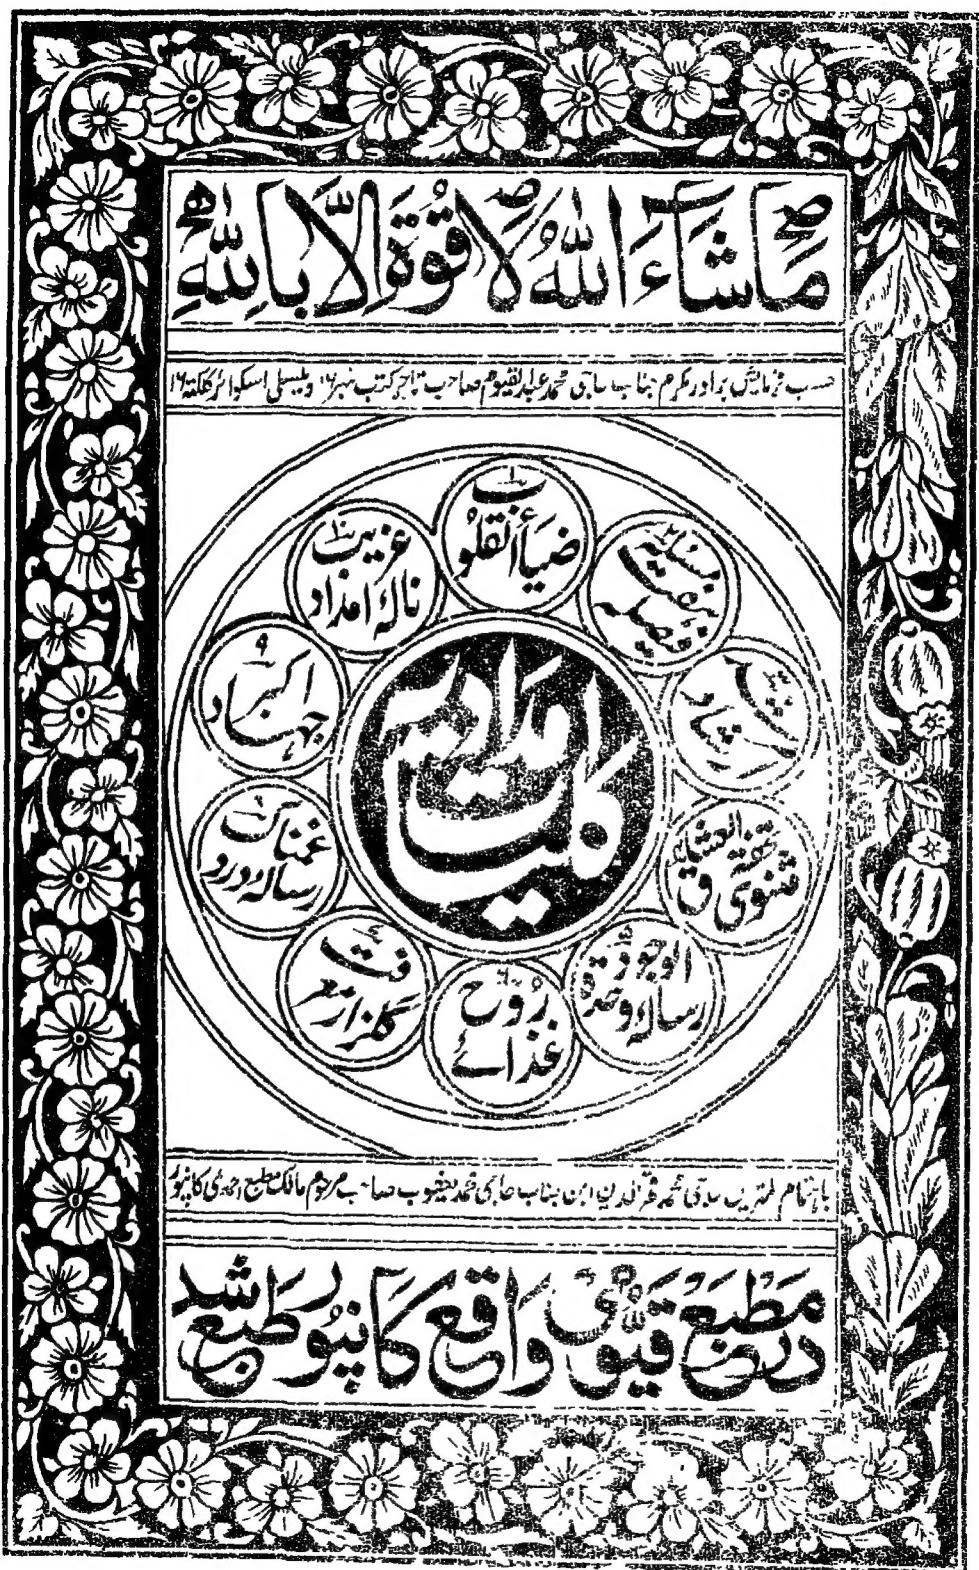 مَا شَآءَ اللّٰهُ لَا قُوَّةَ اِلَّا بِاللّٰهِ
حسب فرمایش برادر مکرم جناب حاجی محمد عبدالقیوم صاحب تاجر کتب نمبر ۱۶ ویلسلی اسکوائر کلکتہ ۱۶
کلیات امدادیہ
۱
ضیاء القلوب
۲
فیصلہ ہفت مسئلہ
ارشاد مرشد
مثنوی تحفۃ العشاق
۵
رسالہ وحدۃ الوجود
۶
غذائے روح
۷
گلزار معرفت
رسالہ درد غمناک
۹
جہاد اکبر
۱۰
نالہ امداد غریب
باہتمام کمترین حاجی محمد قمرالدین ابن جناب حاجی محمد یعقوب صاحب مرحوم مالک مطبع احمدی کانپور
در مطبع قیومی واقع کانپور طبع شد